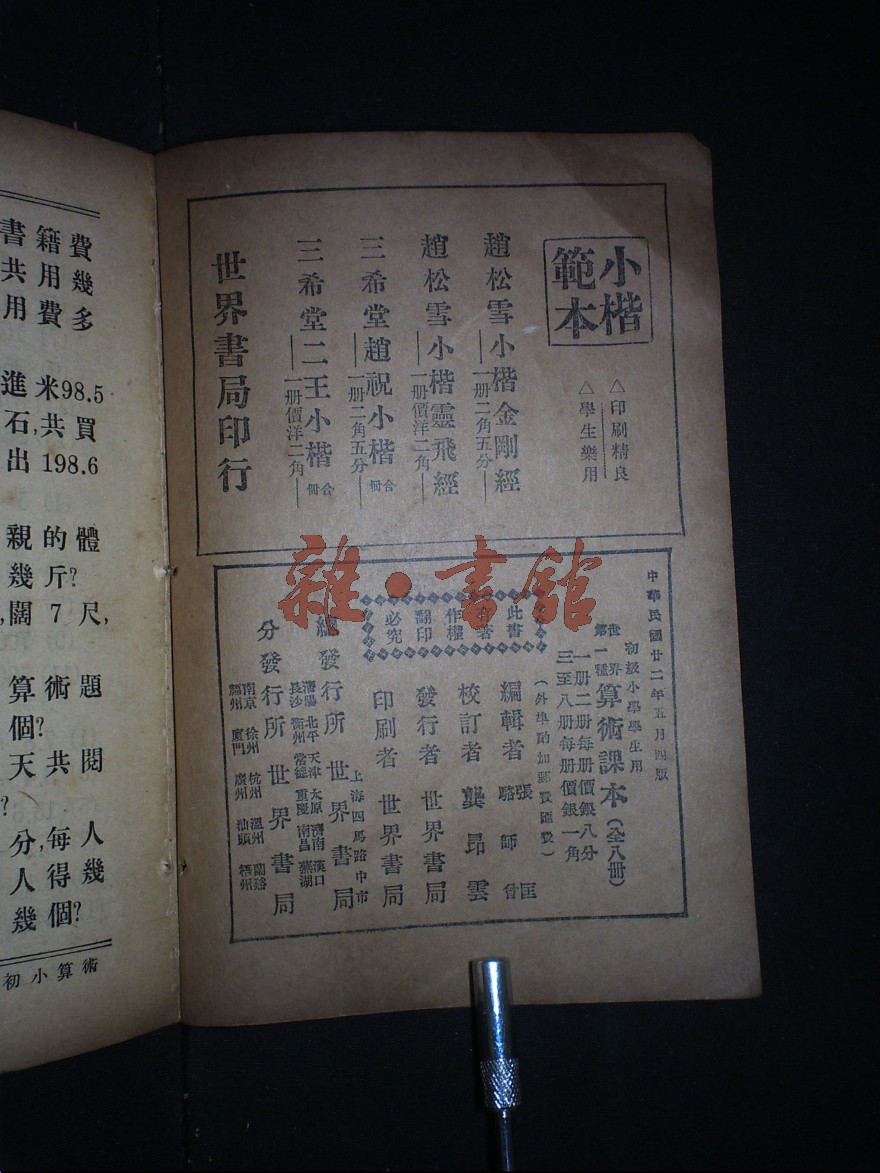 書籍費
共用幾
用費多
進米98.5
石,共買
出198.6
親的體
幾斤?
,闊7尺,
算術題
個?
天共閱
?
分,每人
人得幾
幾個?
初小算術
小楷
範本
△印刷精良
△學生樂用
趙松雪小楷金剛經
一册二角五分
趙松雪小楷靈飛經
一册價洋二角
三希堂趙祝小楷合册
一册二角五分
三希堂二王小楷合册
一册價洋二角
世界書局印行
中華民國廿二年五月四版
初級小學學生用
世界第一種算術課本(全八册)
一册二册每册價銀八分
三至八册每册價銀一角
(外埠酌加郵費匯費)
此書有著作權翻印必究
編輯者 張匡 駱師曾
校訂者 龔昂雲
發行者 世界書局
印刷者 世界書局
上海四馬路中市
總發行所 世界書局
瀋陽 北平 天津 太原 濟南 漢口
長沙 衡州 常德 重慶 南昌 蕪湖
分發行所 世界書局
南京 徐州 杭州 溫州 蘭谿
福州 廈門 廣州 汕頭 梧州
雜·書館